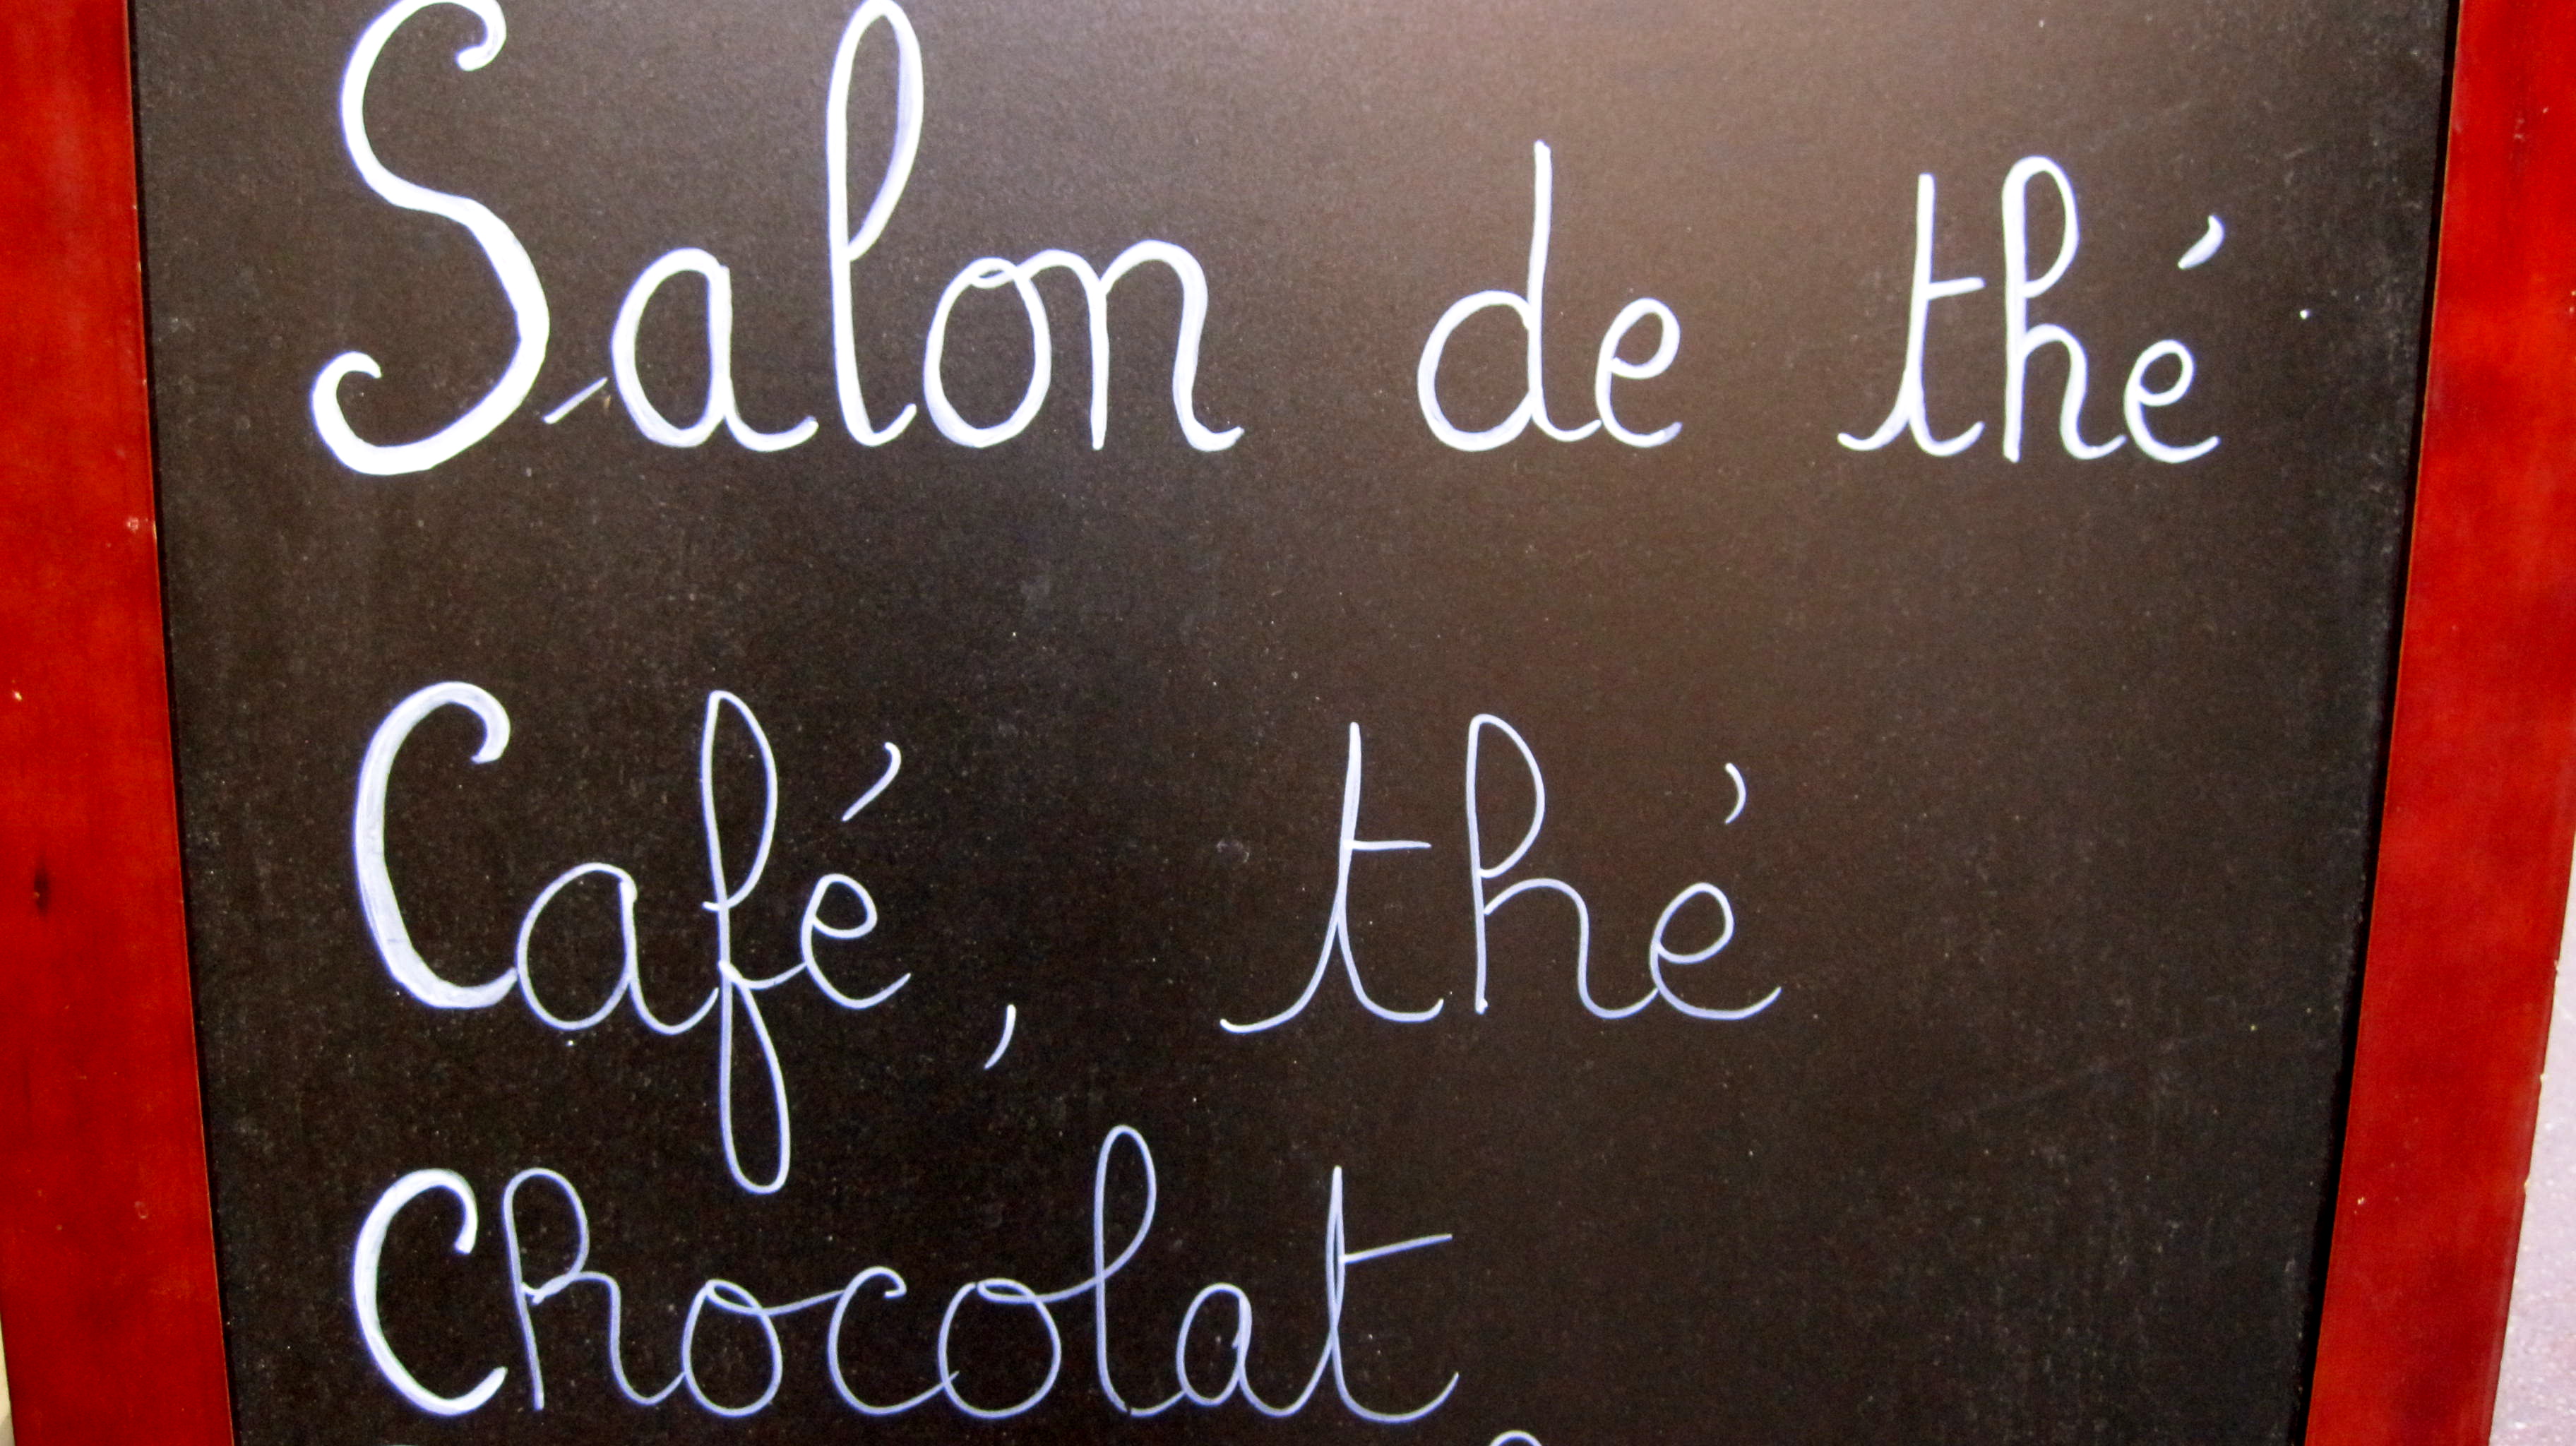 Salon de thé
Café, thé
Chocolat